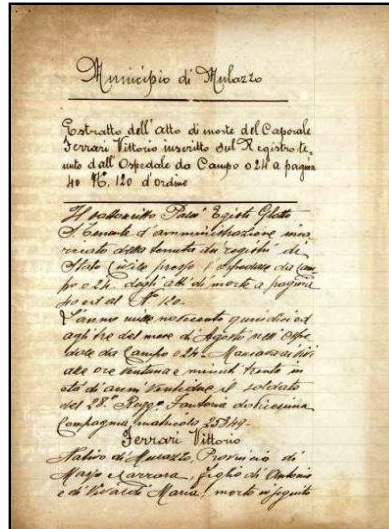 Municipio di Mulazzo
Estratto dell'atto di morte del Caporale
Ferrari Vittorio inscritto sul Registro te-
nuto dall'Ospedale da Campo 024 a pagina
40 N. 120 d'ordine
Il sottoscritto
S. Tenente d'amministrazione inca
ricato della tenuta dei registri di
Stato Civile presso l'Ospedale da Cam
po 024. degli atti di morte a pagina
40 ed al N° 120.
L'anno mille novecento quindici ed
agli tre del mese di Agosto nell'Ospe-
dale da Campo 024.
alle ore ventuna e minuti trenta in
età di anni ventidue il soldato
del 28° Regg. Fanteria dodicesima
Compagnia, matricola
Ferrari Vittorio
Nativo di Mulazzo, Provincia di
Massa Carrara, figlio di Antonio
e di Maria, morto in seguito